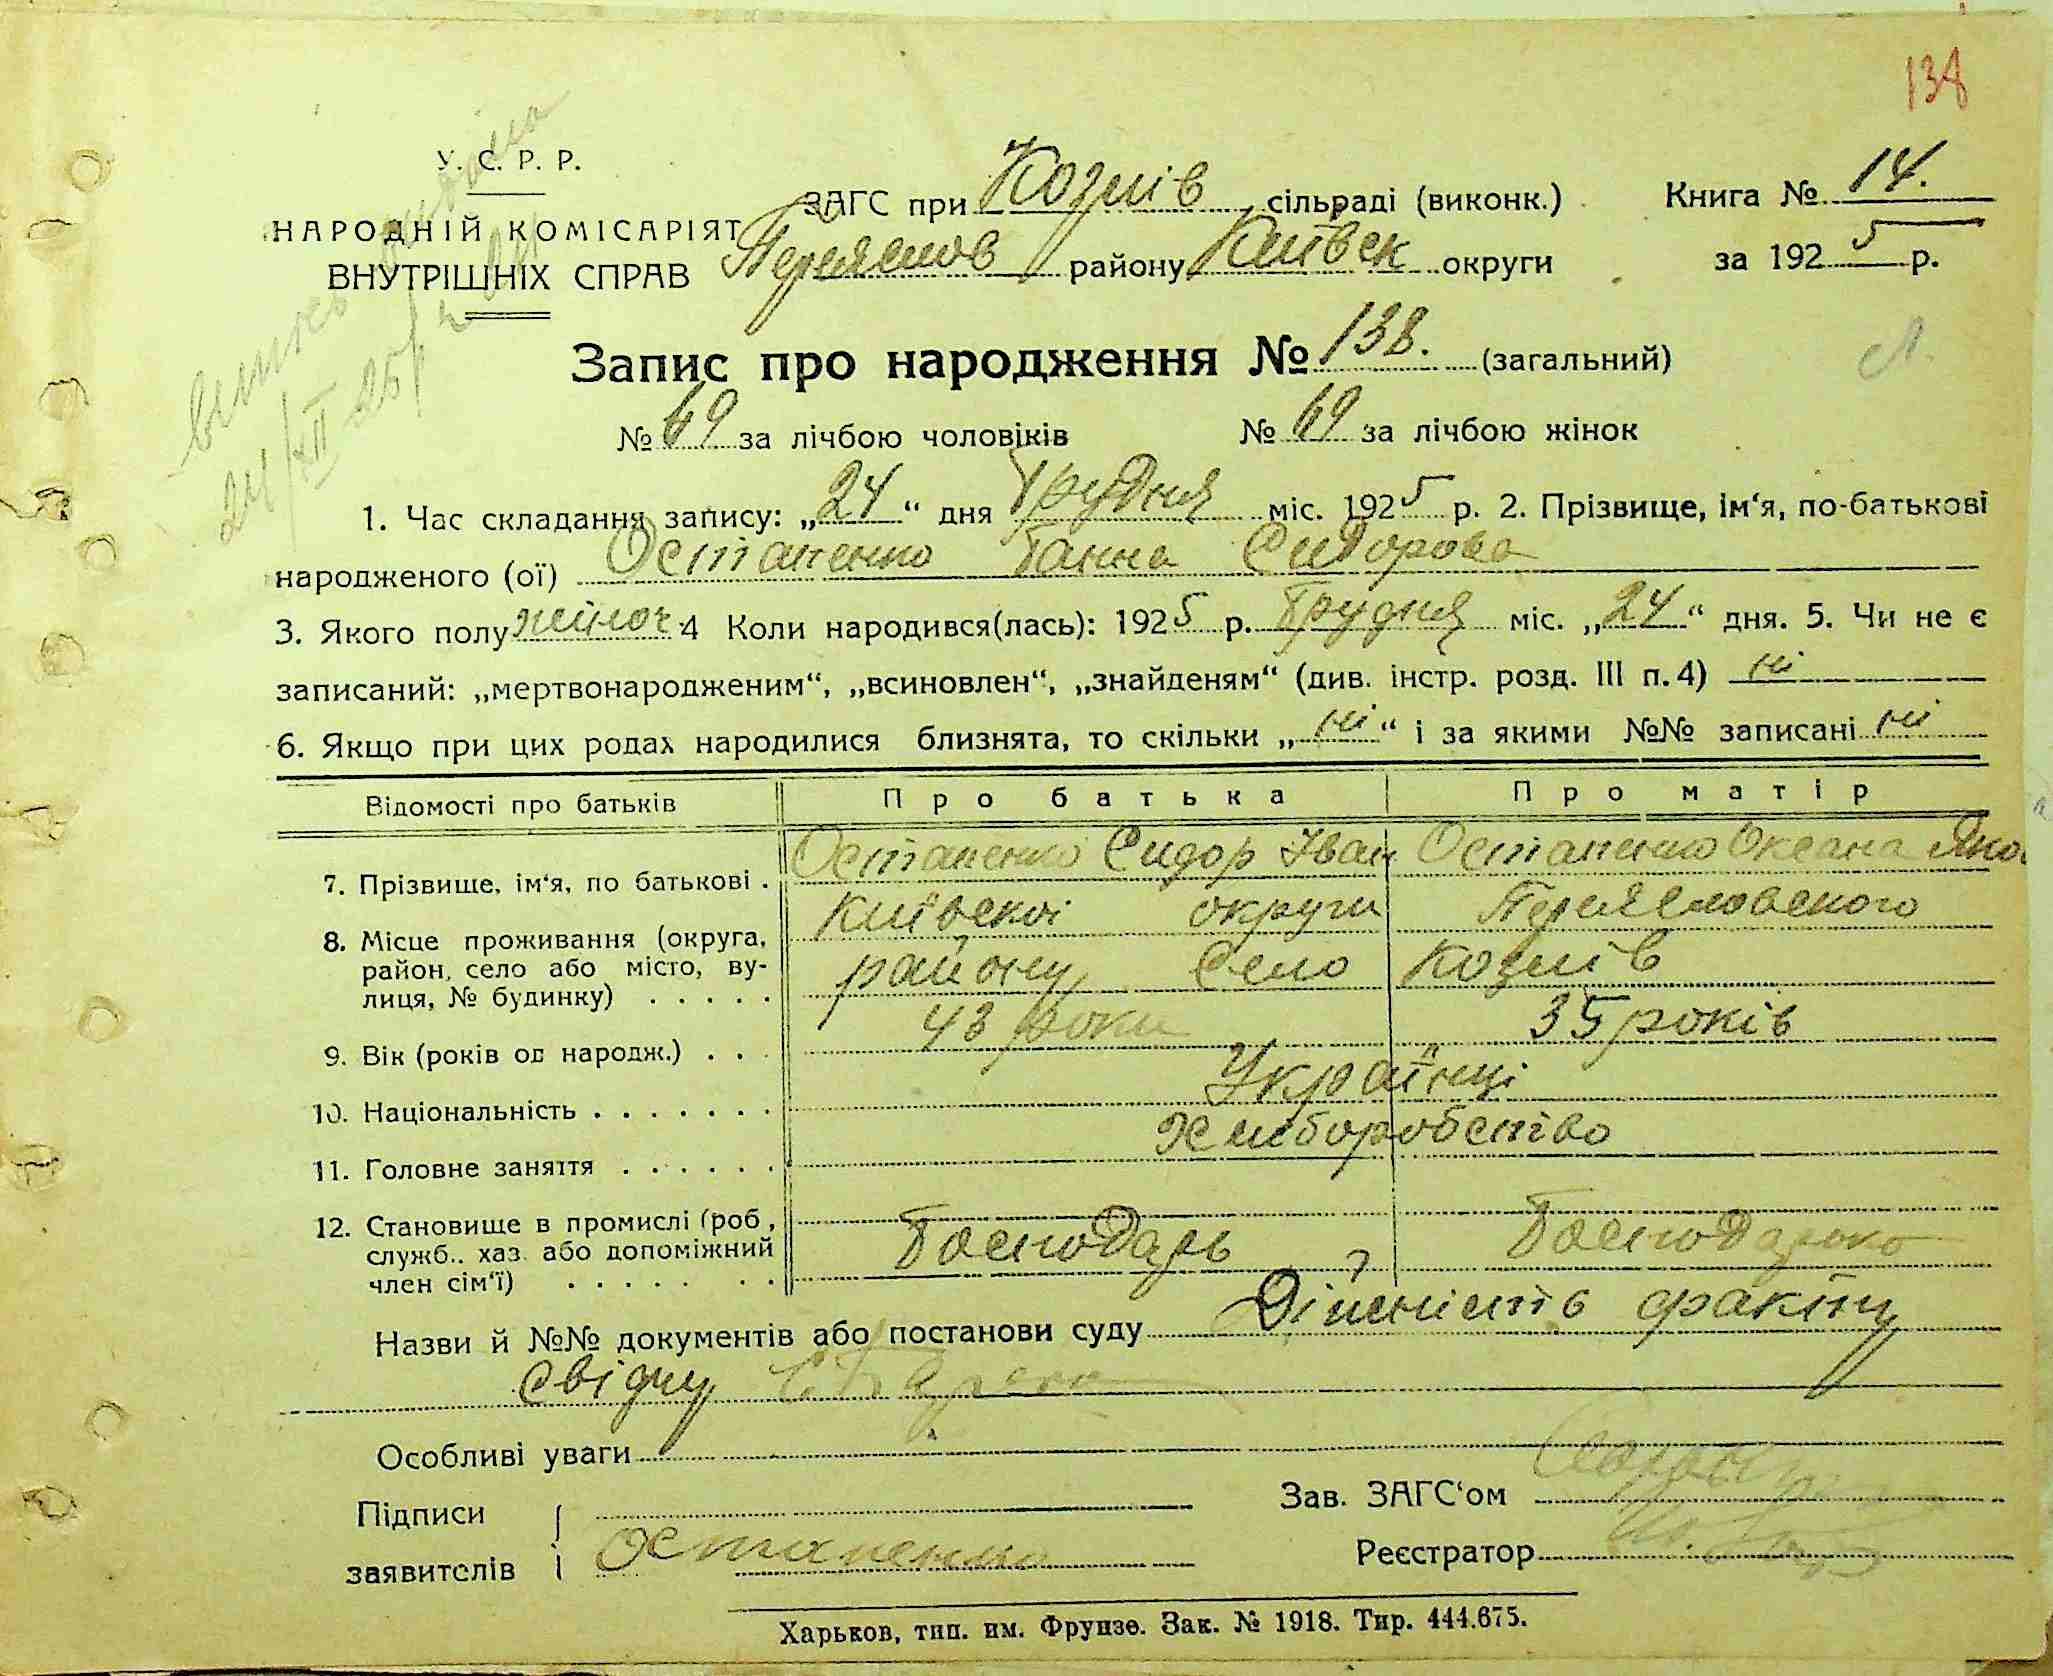 138
У. С. Р. Р.
НАРОДНІЙ КОМІСАРІЯТ
ВНУТРІШНІХ СПРАВ
ЗАГС при Козлів сільраді (виконк.)
Переяслов району Київск округи
Книга № 14.
за 1925 р.
Запис про народження № 138. (загальний)
№ 69 за лічбою чоловіків № 69 за лічбою жінок
24/XII 25
1. Час складання запису: „24“ дня Грудня міс. 1925 р. 2. Прізвище, ім‘я, по-батькові
народженого (ої) Остапенко Ганна Сидорова
3. Якого полу жіноч. 4 Коли народився(лась): 1925 р. Грудня міс. „24“ дня. 5. Чи не є
записаний: „мертвонародженим“, „всиновлен“, „знайденям“ (див. інстр. розд. III п. 4) ні
6. Якщо при цих родах народилися близнята, то скільки „ні“ і за якими №№ записані ні
Відомості про батьків Про батька Про матір
7. Прізвище, ім‘я, по батькові . Остапенко Сидор Іван Остапенко Оксана Яко
8. Місце проживання (округа, Київскоі округи Переясловского
район, село або місто, ву- району Село Козлів
лиця, № будинку) . . . . .
9. Вік (років од народж.) . . . 43 роки 35 років
10. Національність . . . . . . . Українці
11. Головне заняття . . . . . . Хлиборобство
12. Становище в промислі (роб,
служб.. хаз. або допоміжний Господарь Господарька
член сім‘ї) . . . . . . .
Назви й №№ документів або постанови суду Дійсність факту
свідчу
Особливі уваги
Підписи
заявителів Остапенко
Зав. ЗАГС‘ом
Реєстратор
Харьков, тип. им. Фрунзе. Зак. № 1918. Тир. 444.675.